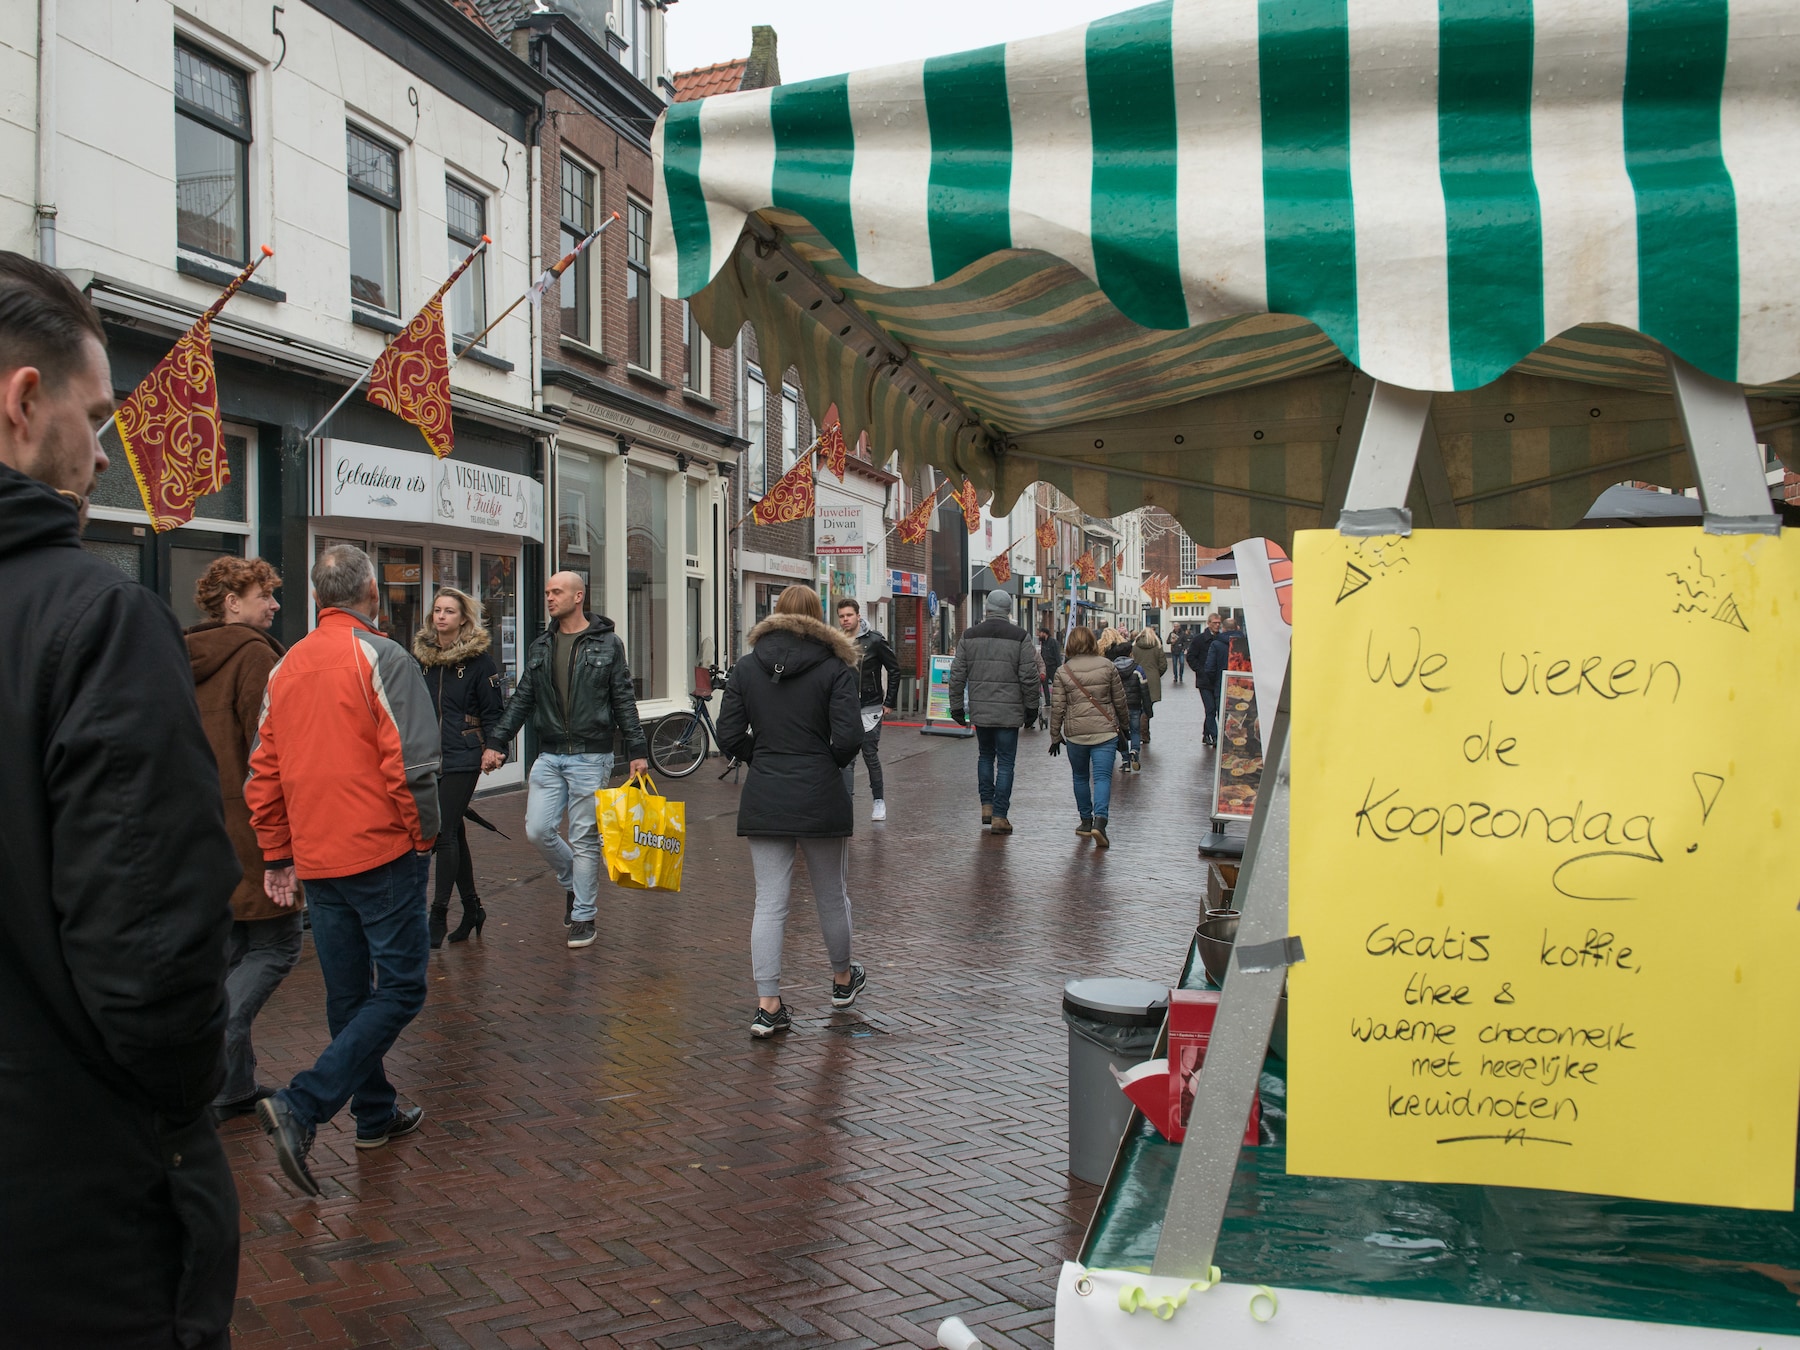 5
9
3
Gebakken vis
VISHANDEL
't Tuikje
VLEESCHHOUWERIJ SCHIFFMACHER
Juwelier
Diwan
inkoop & verkoop
Intertoys
We vieren
de
Koopzondag!
Gratis koffie,
thee &
warme chocomelk
met heerlijke
kruidnoten